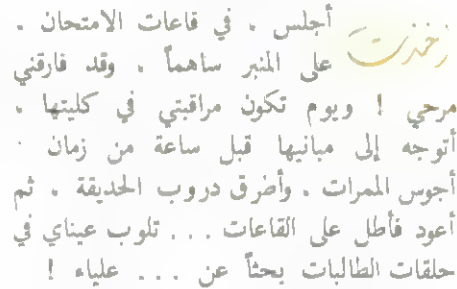 أخذت أجلس ، في قاعات الامتحان ،
على المنبر ساهماً ، وقد فارقني
مرحي ! ويوم تكون مراقبتي في كليتها ،
أتوجه إلى مبانيها قبل ساعة من زمان .
أجوس الممرات ، وأضرق دروب الحديقة ، ثم
أعود فأطل على القاعات ... تلوب عيناي في
حلقات الطالبات بحثاً عن ... علياء !